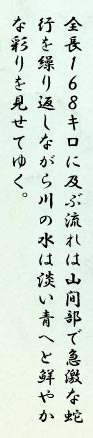 全長168キロに及ぶ流れは山間部で急激な蛇
行を繰り返しながら川の水は淡い青へと鮮やか
な彩りを見せてゆく。